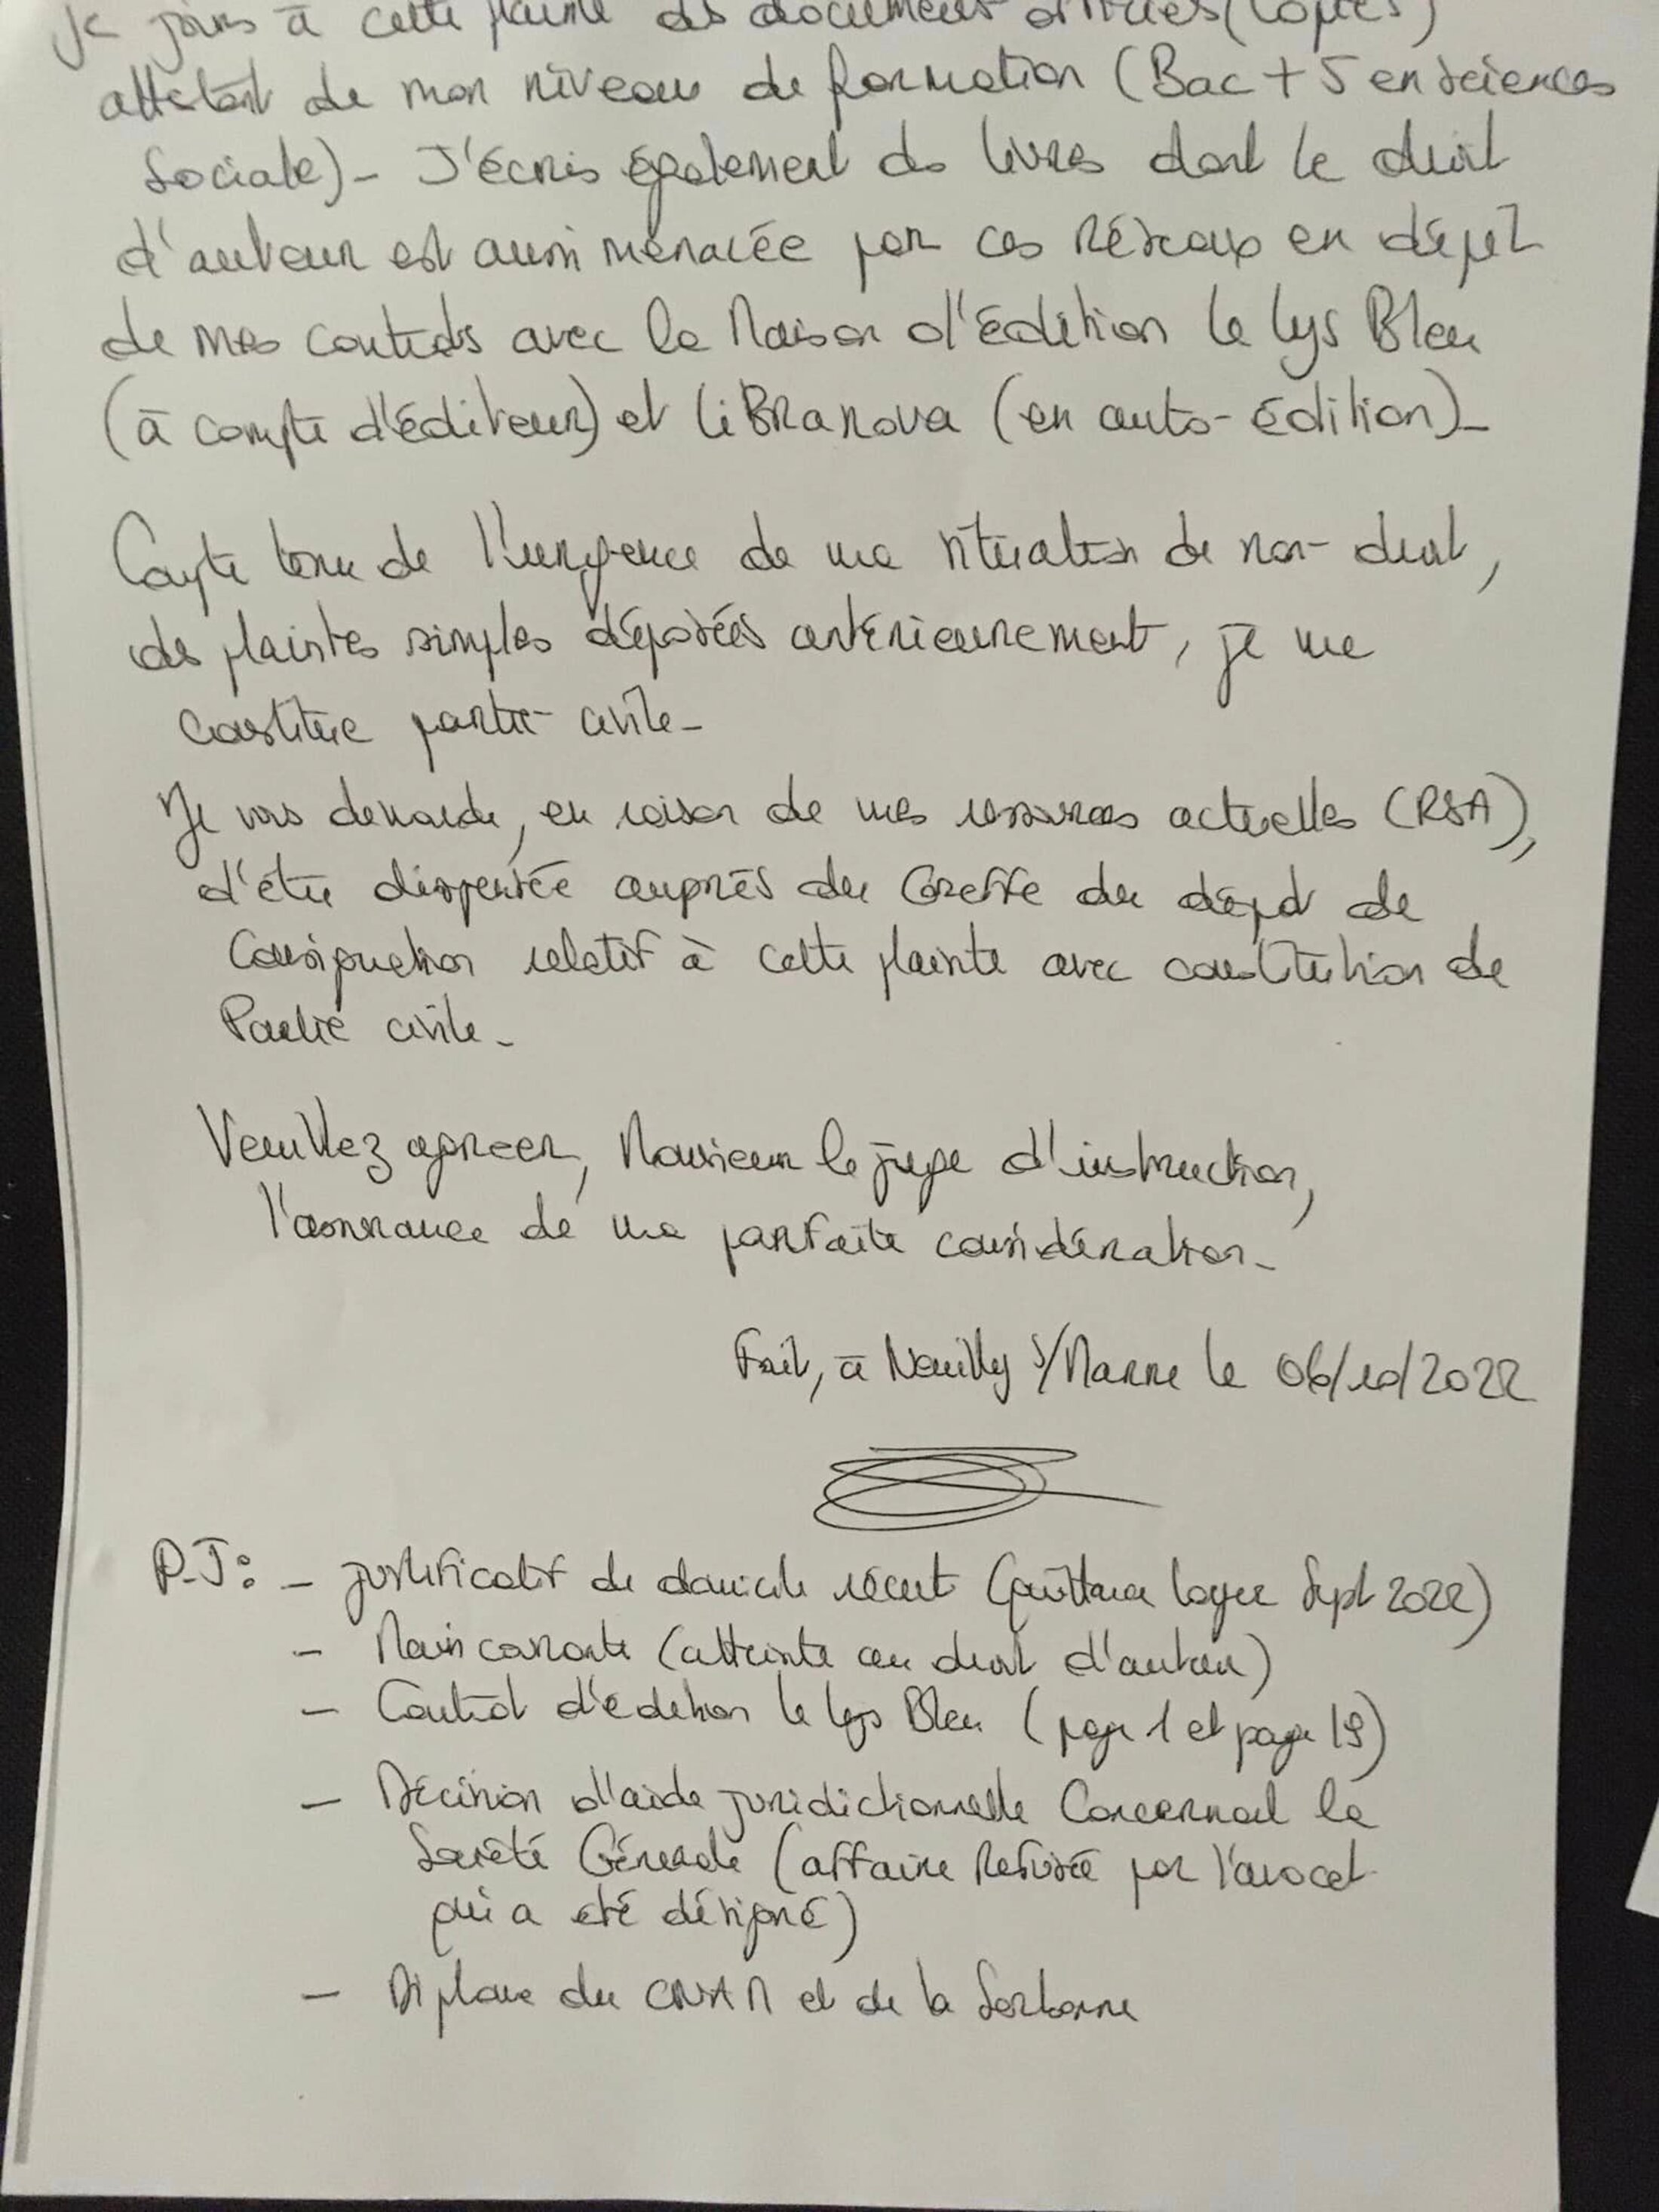 Je joins à cette plainte des documents officiels (copies)
attestant de mon niveau de formation (Bac + 5 en Sciences
Sociale) - J'écris également des livres dont le droit
d'auteur est aussi menacée par ces Réseaux en dépit
de mes contrats avec la Maison d'édition le lys Bleu
(à compte d'éditeur) et LiBRanova (en auto-édition) -
Compte tenu de l'urgence de ma situation de non-droit,
des plaintes simples déposées antérieurement, je me
constitue partie civile -
Je vous demande, en raison de mes ressources actuelles (RSA),
d'être dispensée auprès du Greffe du dépôt de
Consignation relatif à cette plainte avec constitution de
Partie civile -
Veuillez agréer, Monsieur le juge d'instruction,
l'assurance de ma parfaite considération -
Fait, à Neuilly S/Marne le 06/10/2022
P.J: - justificatif de domicile récent (quittance loyer Sept 2022)
- Main courante (atteinte au droit d'auteur)
- Contrat d'édition le lys Bleu (page 1 et page 19)
- Décision d'aide juridictionnelle Concernant la
Société Générale (affaire Refusée par l'avocat
qui a été désigné)
- Diplôme du CNAM et de la Sorbonne